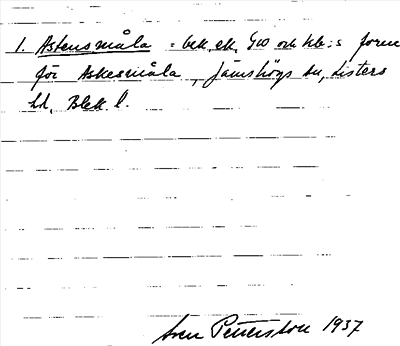 1. Astensmåla = bek. ek. GW och kb:s form
för Askesmåla, Jämshögs sn, Listers
hd, Blek. l.
Sven Pettersson 1937